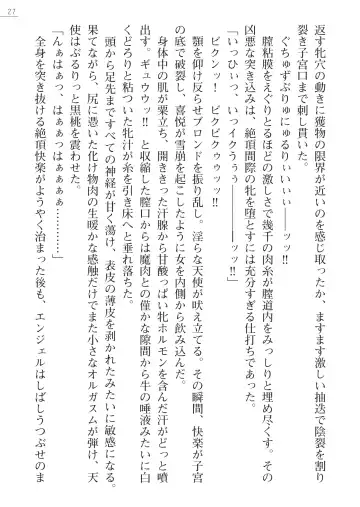 27
返す牝穴の動きに獲物の限界が近いのを感じ取ったか、ますます激しい抽送で陰裂を割り
裂き子宮口まで刺し貫いた。
ぐちゅずぶりゅにゅるりぃいぃぃ――――ッッ‼
膣粘膜をえぐりとるほどの激しさで幾千の肉糸が膣道内をみっしりと埋め尽くす。その
凶悪な突き込みは、絶頂間際の牝を堕とすには充分すぎる仕打ちであった。
「いっひぃっ、いっイクぅううぅ――――ッッ‼」
ビクンッ！　ビクビクゥゥッッ‼
顎を仰け反らせブロンドを振り乱し、淫らな天使が吠え立てる。その瞬間、快楽が子宮
の底で破裂し、喜悦が雪崩を起こしたように女を内側から飲み込んだ。
身体中の肌が粟立ち、開ききった汗腺から甘酸っぱい牝ホルモンを含んだ汗がどっと噴
き出す。ギュウウッ‼　と収縮した膣口からは魔肉との僅かな隙間から牛の唾液みたいに白
くどろりと粘ついた牝汁が糸を引き床へと垂れ落ちた。
頭から足先まですべての神経が甘く蕩け、表皮の薄皮を剥かれたみたいに敏感になる。
果てながら、尻に憑いた化け物肉の生暖かな感触だけでまた小さなオルガスムが弾け、天
使はぶるりっと黒桃を震わせた。
「んぁはぁっ、はぁぁっはぁぁぁ…………」
全身を突き抜ける絶頂快楽がようやく治まった後も、エンジェルはしばしうつぶせのま